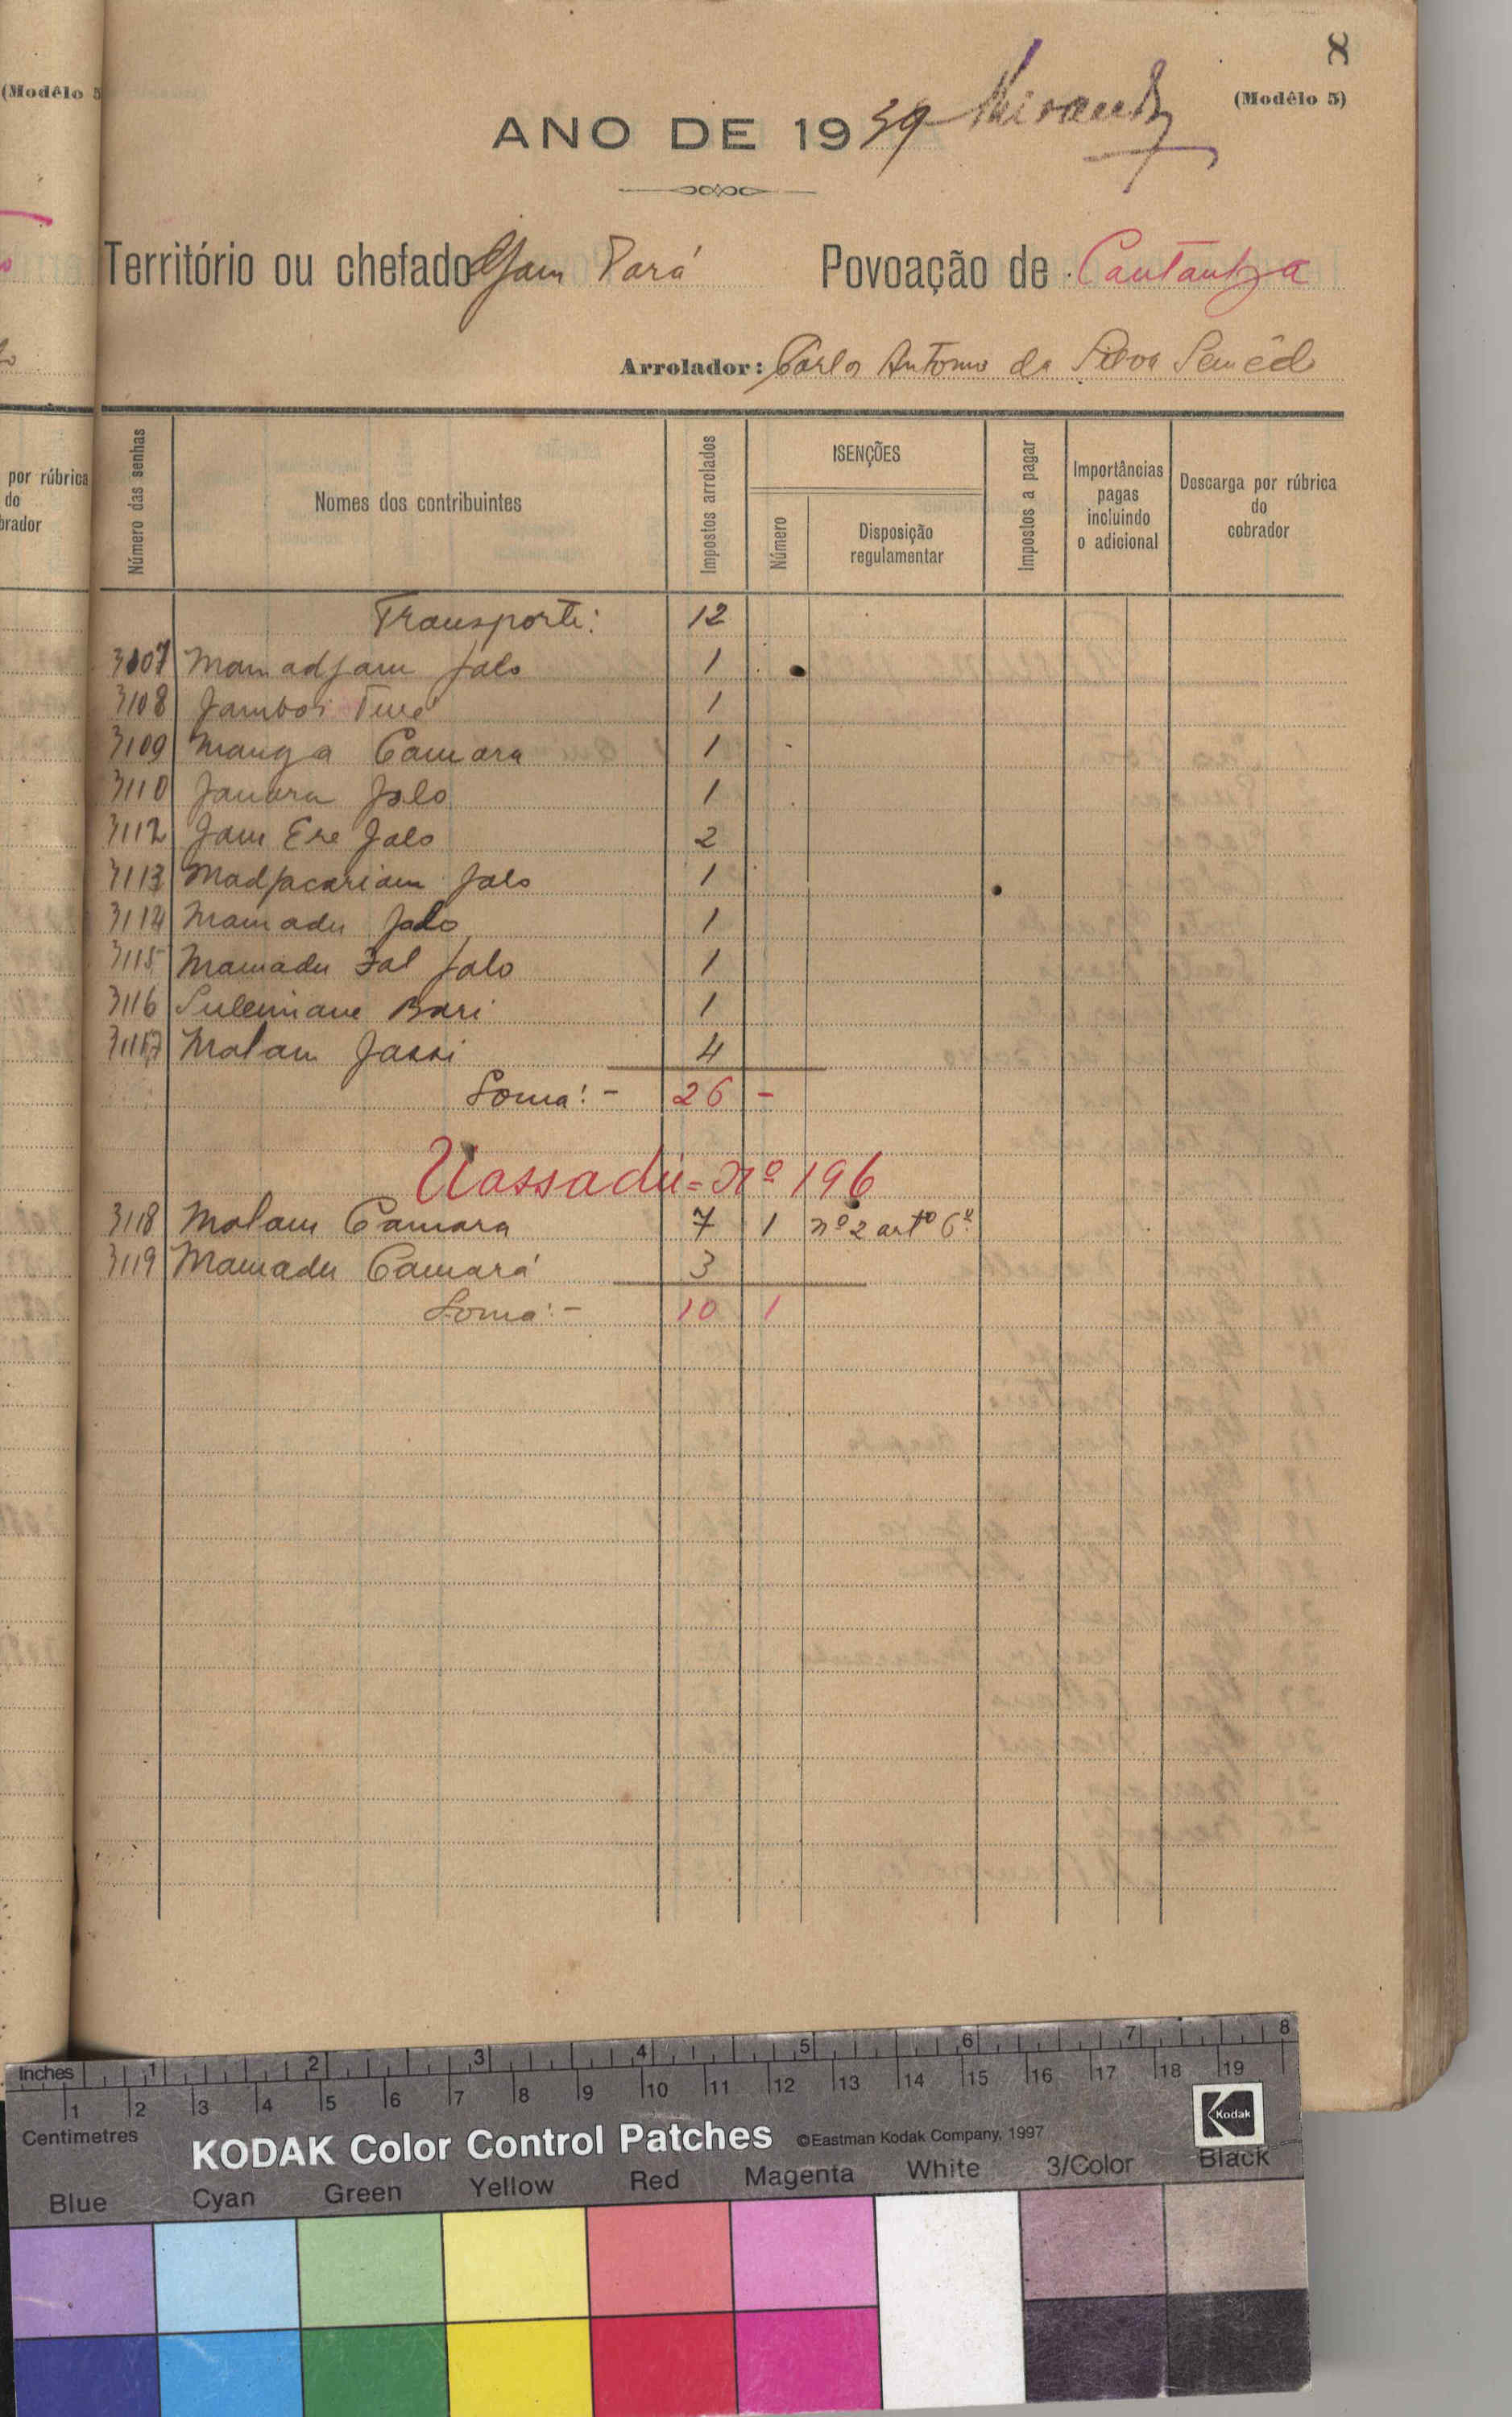 8
(Modêlo 5)
(Modêlo 5)
ANO DE 1939
Território ou chefado Povoação de Cantanha
Arrolador: Carlos Antonio da Silva Semêdo
por rúbrica
do
brador
Número das senhas
Nomes dos contribuintes
Impostos arrolados
ISENÇÕES
Número
Disposição
regulamentar
Impostos a pagar
Importâncias
pagas
incluindo
o adicional
Descarga por rúbrica
do
cobrador
Transporte: 12
3107 Mamadjam Jalo 1
3108 Jamboi Ture 1
3109 Manga Camara 1
3110 Janura Jalo 1
3112 Jam Ere Jalo 2
3113 Madjacariam Jalo 1
3114 Mamadu Jalo 1
3115 Mamadu Sal Jalo 1
3116 Suleimane Bari 1
3117 Malam Jassi 4
Soma: - 26 -
Uassadu = nº 196
3118 Malam Camara 7 1 nº 2 artº 6º
3119 Mamadu Camará 3
Soma: - 10 1
Inches 1 2 3 4 5 6 7 8
1 2 3 4 5 6 7 8 9 10 11 12 13 14 15 16 17 18 19
Centimetres
KODAK Color Control Patches ©Eastman Kodak Company, 1997 Kodak
Blue Cyan Green Yellow Red Magenta White 3/Color Black